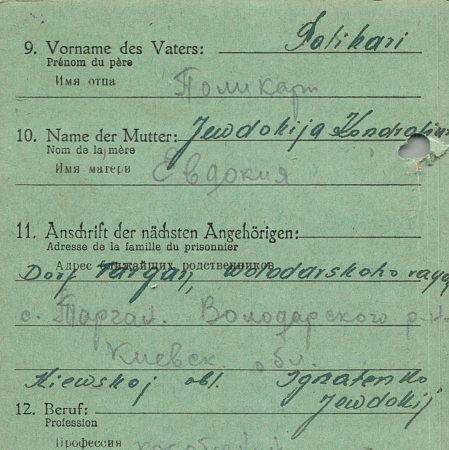 9. Vorname des Vaters: Polikari
Prénom du père
Имя отца Поликарп
10. Name der Mutter: Jewdokija Kondratiun
Nom de la mère
Имя матери Евдокия
11. Anschrift der nächsten Angehörigen:
Adresse de la famille du prisonnier
Адрес ближайших родственников
Dorf Targan, Wolodarskoho rayo
с. Тарган. Володарского р-н
Киевск. обл.
Kiewskoj obl. Ignatenko
Jewdokij
12. Beruf:
Profession
Профессия